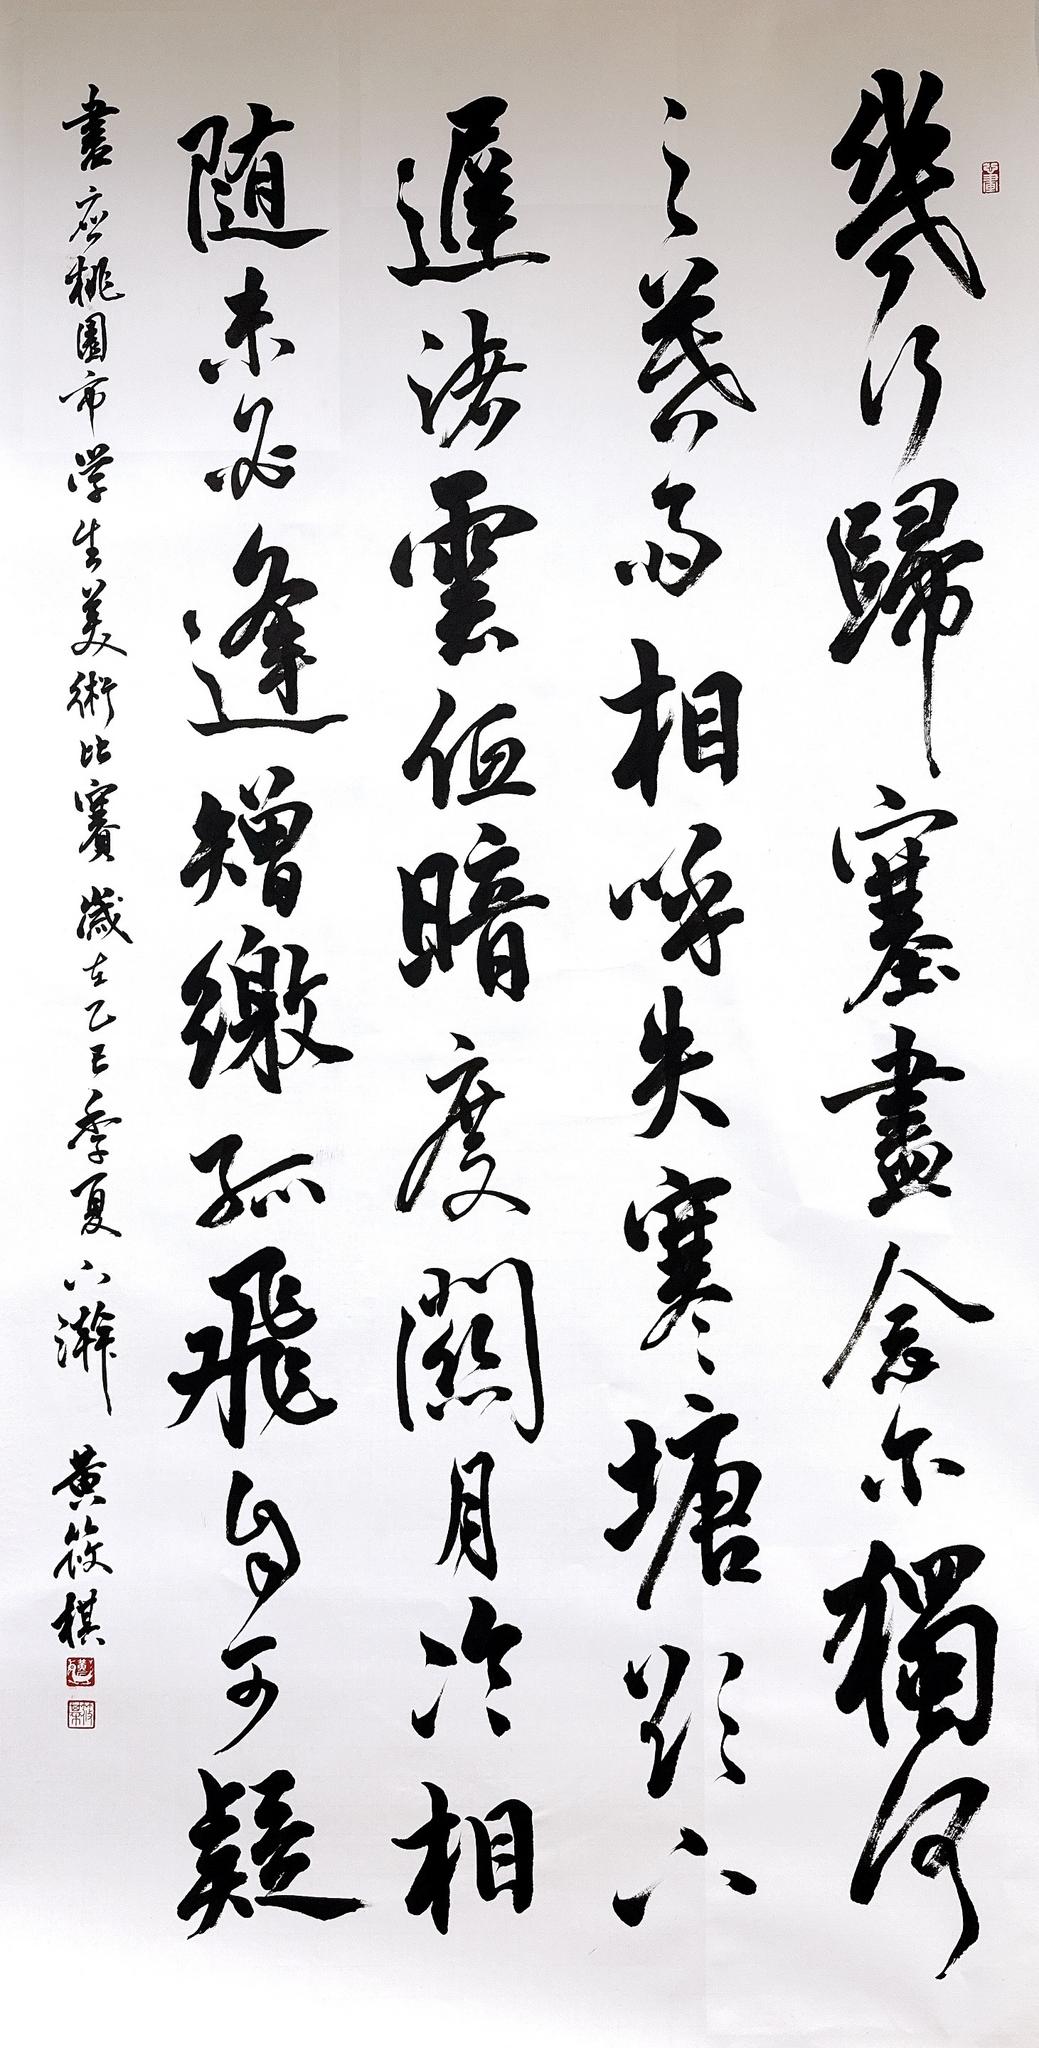 幾行歸塞盡念尔獨何
之暮雨相呼失寒塘欲下
遲渚雲低暗度關月冷相
随未必逢矰繳孤飛自可疑
書應桃園市學生美術比賽 歲在乙巳季夏下澣 黃筱棋